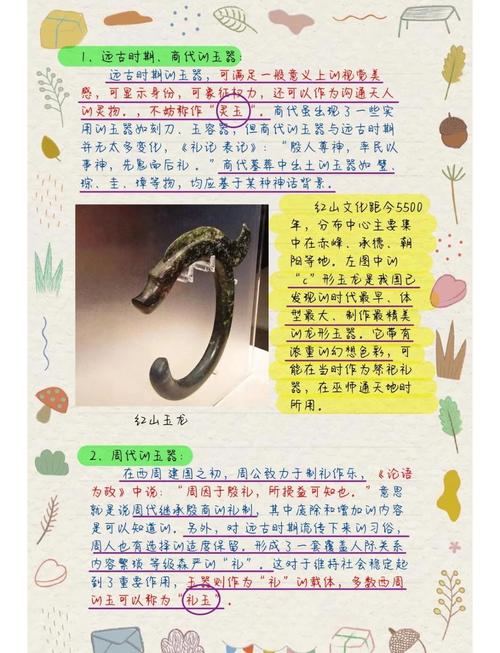 1、远古时期、商代的玉器：
远古时期的玉器，可满足一般意义上的视觉美
感，可显示身份，可象征权力，还可以作为沟通天人
的灵物。，不妨称作“灵玉”。商代虽出现了一些实
用的玉器如刻刀、玉容器，但商代的玉器与远古时期
并无太多变化，《礼记·表记》：“殷人尊神，率民以
事神，先鬼而后礼。”商代墓葬中出土的玉器如 璧、
琮、圭、璋等物，均应基于某种神话背景。
红山文化距今5500
年，分布中心主要集
中在赤峰、承德、朝
阳等地。左图中的
“c”形玉龙是我国已
发现的时代最早、体
型最大、制作最精美
的龙形玉器。它带有
浓重的幻想色彩，可
能在当时作为祭祀礼
器，在巫师通天地时
所用。
红山玉龙
2、周代的玉器：
在西周 建国之初，周公致力于制礼作乐，《论语·
为政》中说：“周因于殷礼，所损益可知也。”意思
就是说周代继承殷商的礼制，其中废除和增加的内容
是可以知道的。另外，对 远古时期流传下来的习俗，
周人也有选择的适度保留。形成了一套覆盖人际关系
内容繁琐 等级森严的“礼”。这对于维持社会稳定起
到了重要作用，玉器则作为“礼”的载体，多数西周
的玉可以称为“礼玉”。